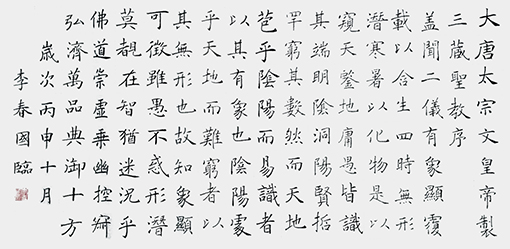 大唐太宗文皇帝製
三藏聖教序
盖聞二儀有象顯覆
載以含生四時無形
潛寒暑以化物是以
窺天鑒地庸愚皆識
其端明陰洞陽賢哲
罕窮其數然而天地
苞乎陰陽而易識者
以其有象也陰陽處
乎天地而難窮者以
其無形也故知象顯
可徵雖愚不惑形潛
莫覩在智猶迷況乎
佛道崇虛乘幽控寂
弘濟萬品典御十方
歲次丙申十月
李春國臨